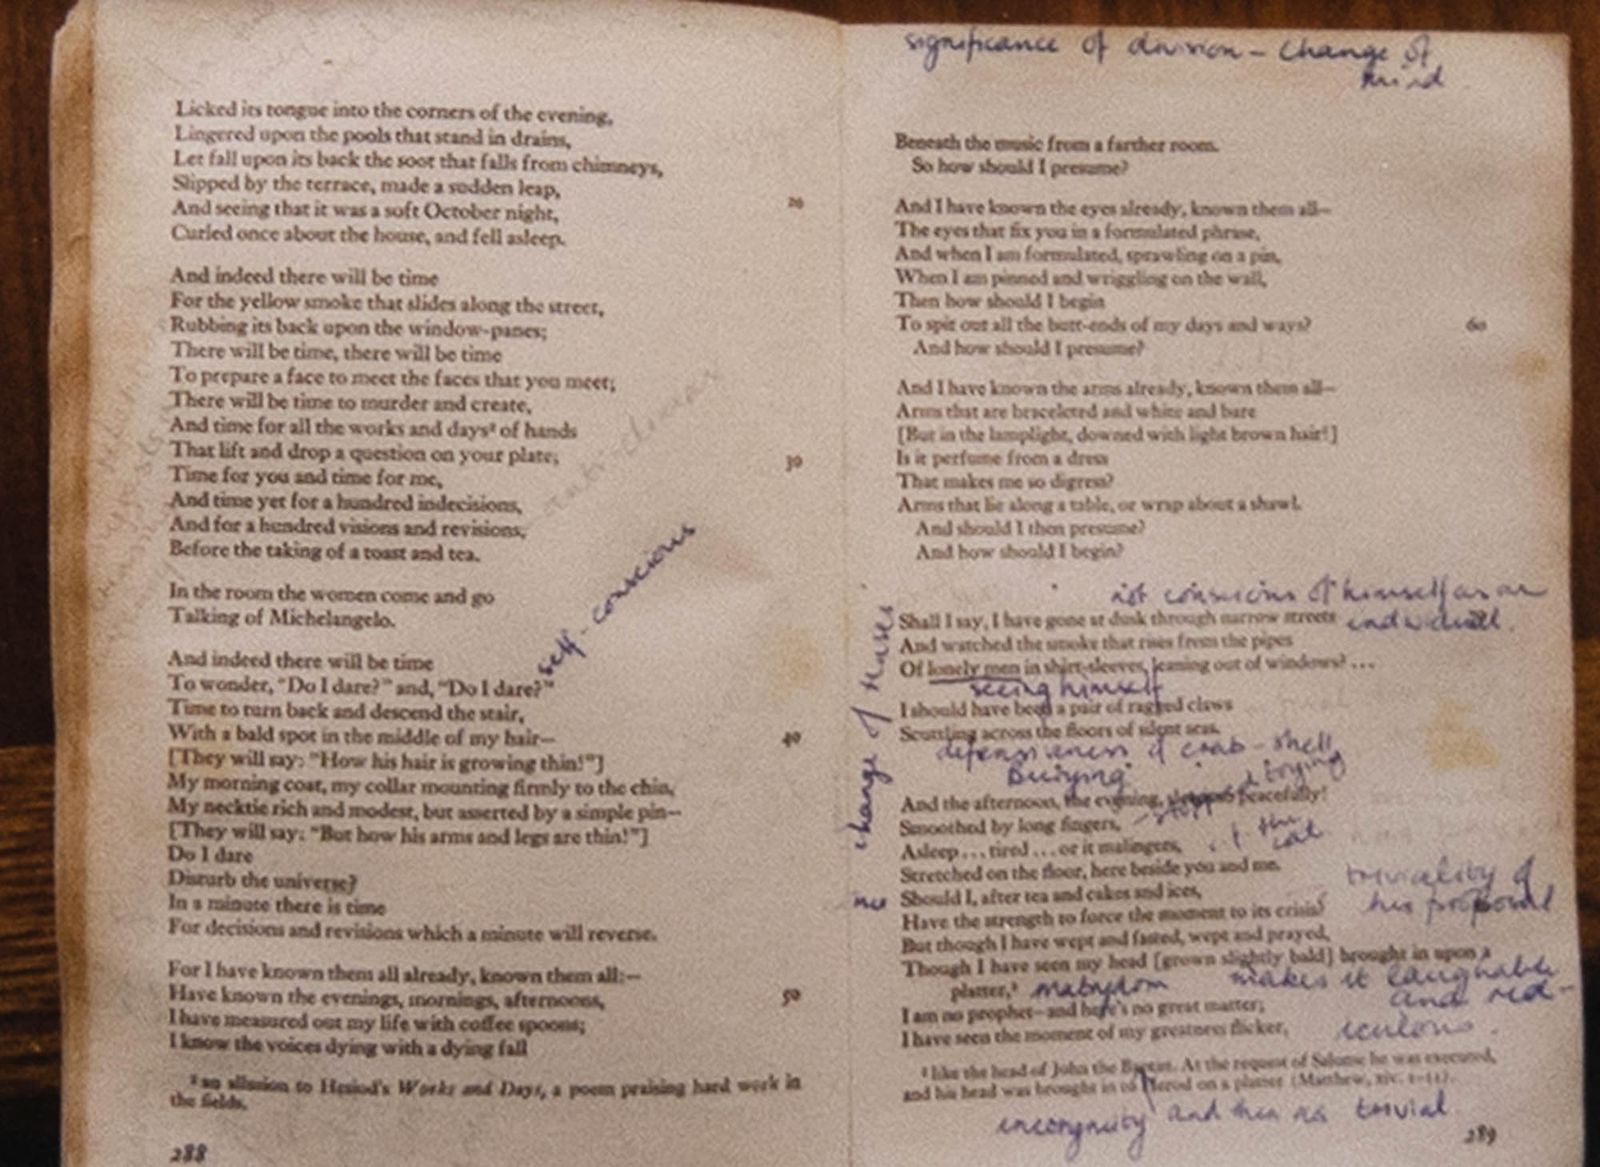 Licked its tongue into the corners of the evening,
Lingered upon the pools that stand in drains,
Let fall upon its back the soot that falls from chimneys,
Slipped by the terrace, made a sudden leap,
And seeing that it was a soft October night, 20
Curled once about the house, and fell asleep.
And indeed there will be time
For the yellow smoke that slides along the street,
Rubbing its back upon the window-panes;
There will be time, there will be time
To prepare a face to meet the faces that you meet;
There will be time to murder and create,
And time for all the works and days² of hands
That lift and drop a question on your plate; 30
Time for you and time for me,
And time yet for a hundred indecisions,
And for a hundred visions and revisions,
Before the taking of a toast and tea.
anti-climax
In the room the women come and go
Talking of Michelangelo.
self-conscious
And indeed there will be time
To wonder, "Do I dare?" and, "Do I dare?"
Time to turn back and descend the stair,
With a bald spot in the middle of my hair— 40
[They will say: "How his hair is growing thin!"]
My morning coat, my collar mounting firmly to the chin,
My necktie rich and modest, but asserted by a simple pin—
[They will say: "But how his arms and legs are thin!"]
Do I dare
Disturb the universe?
In a minute there is time
For decisions and revisions which a minute will reverse.
For I have known them all already, known them all:—
Have known the evenings, mornings, afternoons, 50
I have measured out my life with coffee spoons;
I know the voices dying with a dying fall
² an allusion to Hesiod's Works and Days, a poem praising hard work in
the fields.
288
significance of division - change of
mind
Beneath the music from a farther room.
So how should I presume?
And I have known the eyes already, known them all—
The eyes that fix you in a formulated phrase,
And when I am formulated, sprawling on a pin,
When I am pinned and wriggling on the wall,
Then how should I begin
To spit out all the butt-ends of my days and ways? 60
And how should I presume?
And I have known the arms already, known them all—
Arms that are braceleted and white and bare
[But in the lamplight, downed with light brown hair!]
Is it perfume from a dress
That makes me so digress?
Arms that lie along a table, or wrap about a shawl.
And should I then presume?
And how should I begin?
not conscious of himself as an
individual.
Shall I say, I have gone at dusk through narrow streets
And watched the smoke that rises from the pipes
Of lonely men in shirt-sleeves, leaning out of windows? ...
seeing himself
I should have been a pair of ragged claws
Scuttling across the floors of silent seas.
defensiveness of crab-shell
Burying
no change of
And the afternoon, the evening, sleeps so peacefully!
Smoothed by long fingers,
Asleep ... tired ... or it malingers, the cat
Stretched on the floor, here beside you and me.
Should I, after tea and cakes and ices,
Have the strength to force the moment to its crisis?
triviality of
his proposal
But though I have wept and fasted, wept and prayed,
Though I have seen my head [grown slightly bald] brought in upon a
platter,³ makes it laughable
and red-
iculous.
I am no prophet—and here's no great matter;
I have seen the moment of my greatness flicker,
like the head of John the Baptist. At the request of Salome he was executed,
and his head was brought in to Herod on a platter (Matthew, xiv. 1-11).
incongruity and then as trivial
289